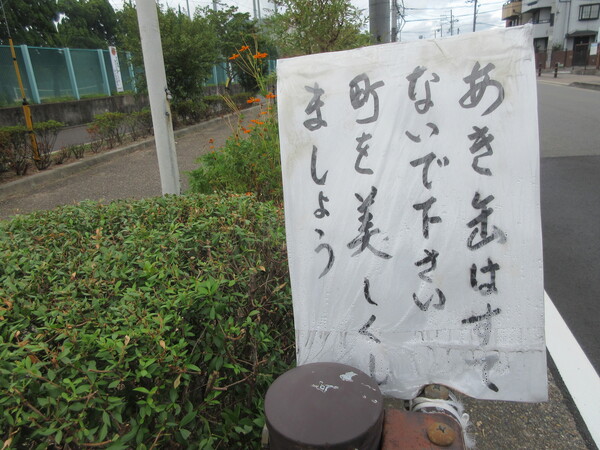 あき缶はすて
ないで下さい
町を美しくし
ましょう